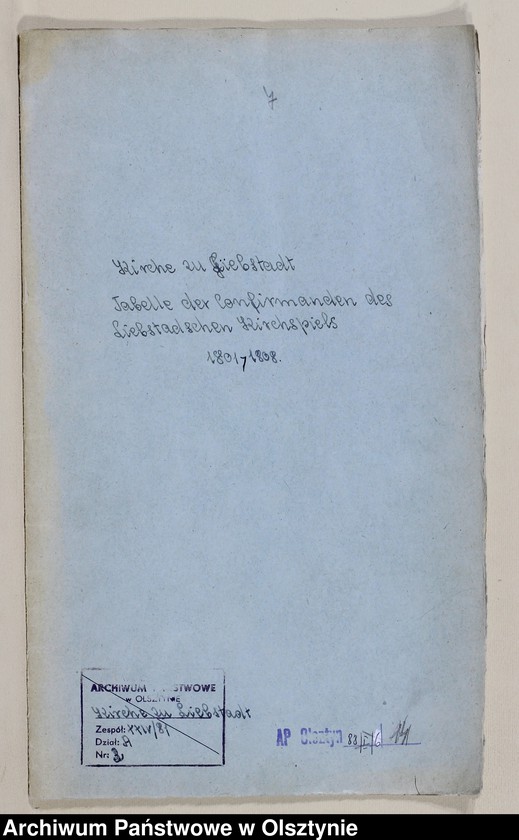 7
Kirche zu Liebstadt
Tabelle der Confirmanden des
Liebstadschen Kirchspiels
1801-1808.
ARCHIWUM PAŃSTWOWE
W OLSZTYNIE
Kirche zu Liebstadt
Zespół: XXIV/81
Dział: A
Nr: 3
AP Olsztyn
Archiwum Państwowe w Olsztynie